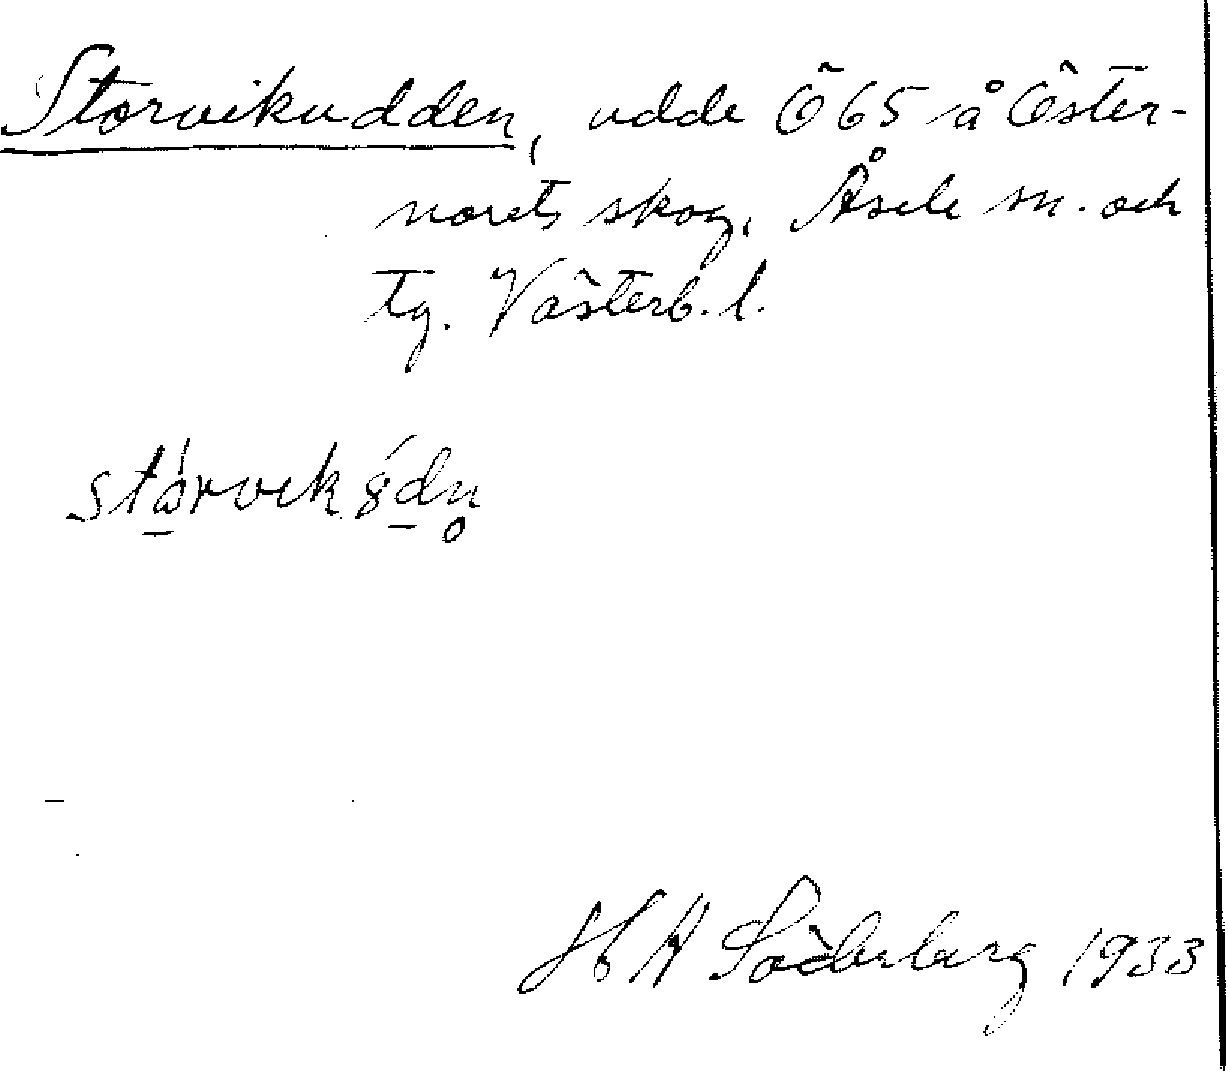 Storvikudden, udde Ö 65 å Öster-
norets skog, Åsele sn. och
tg. Västerb. l.
H A Söderberg 1933